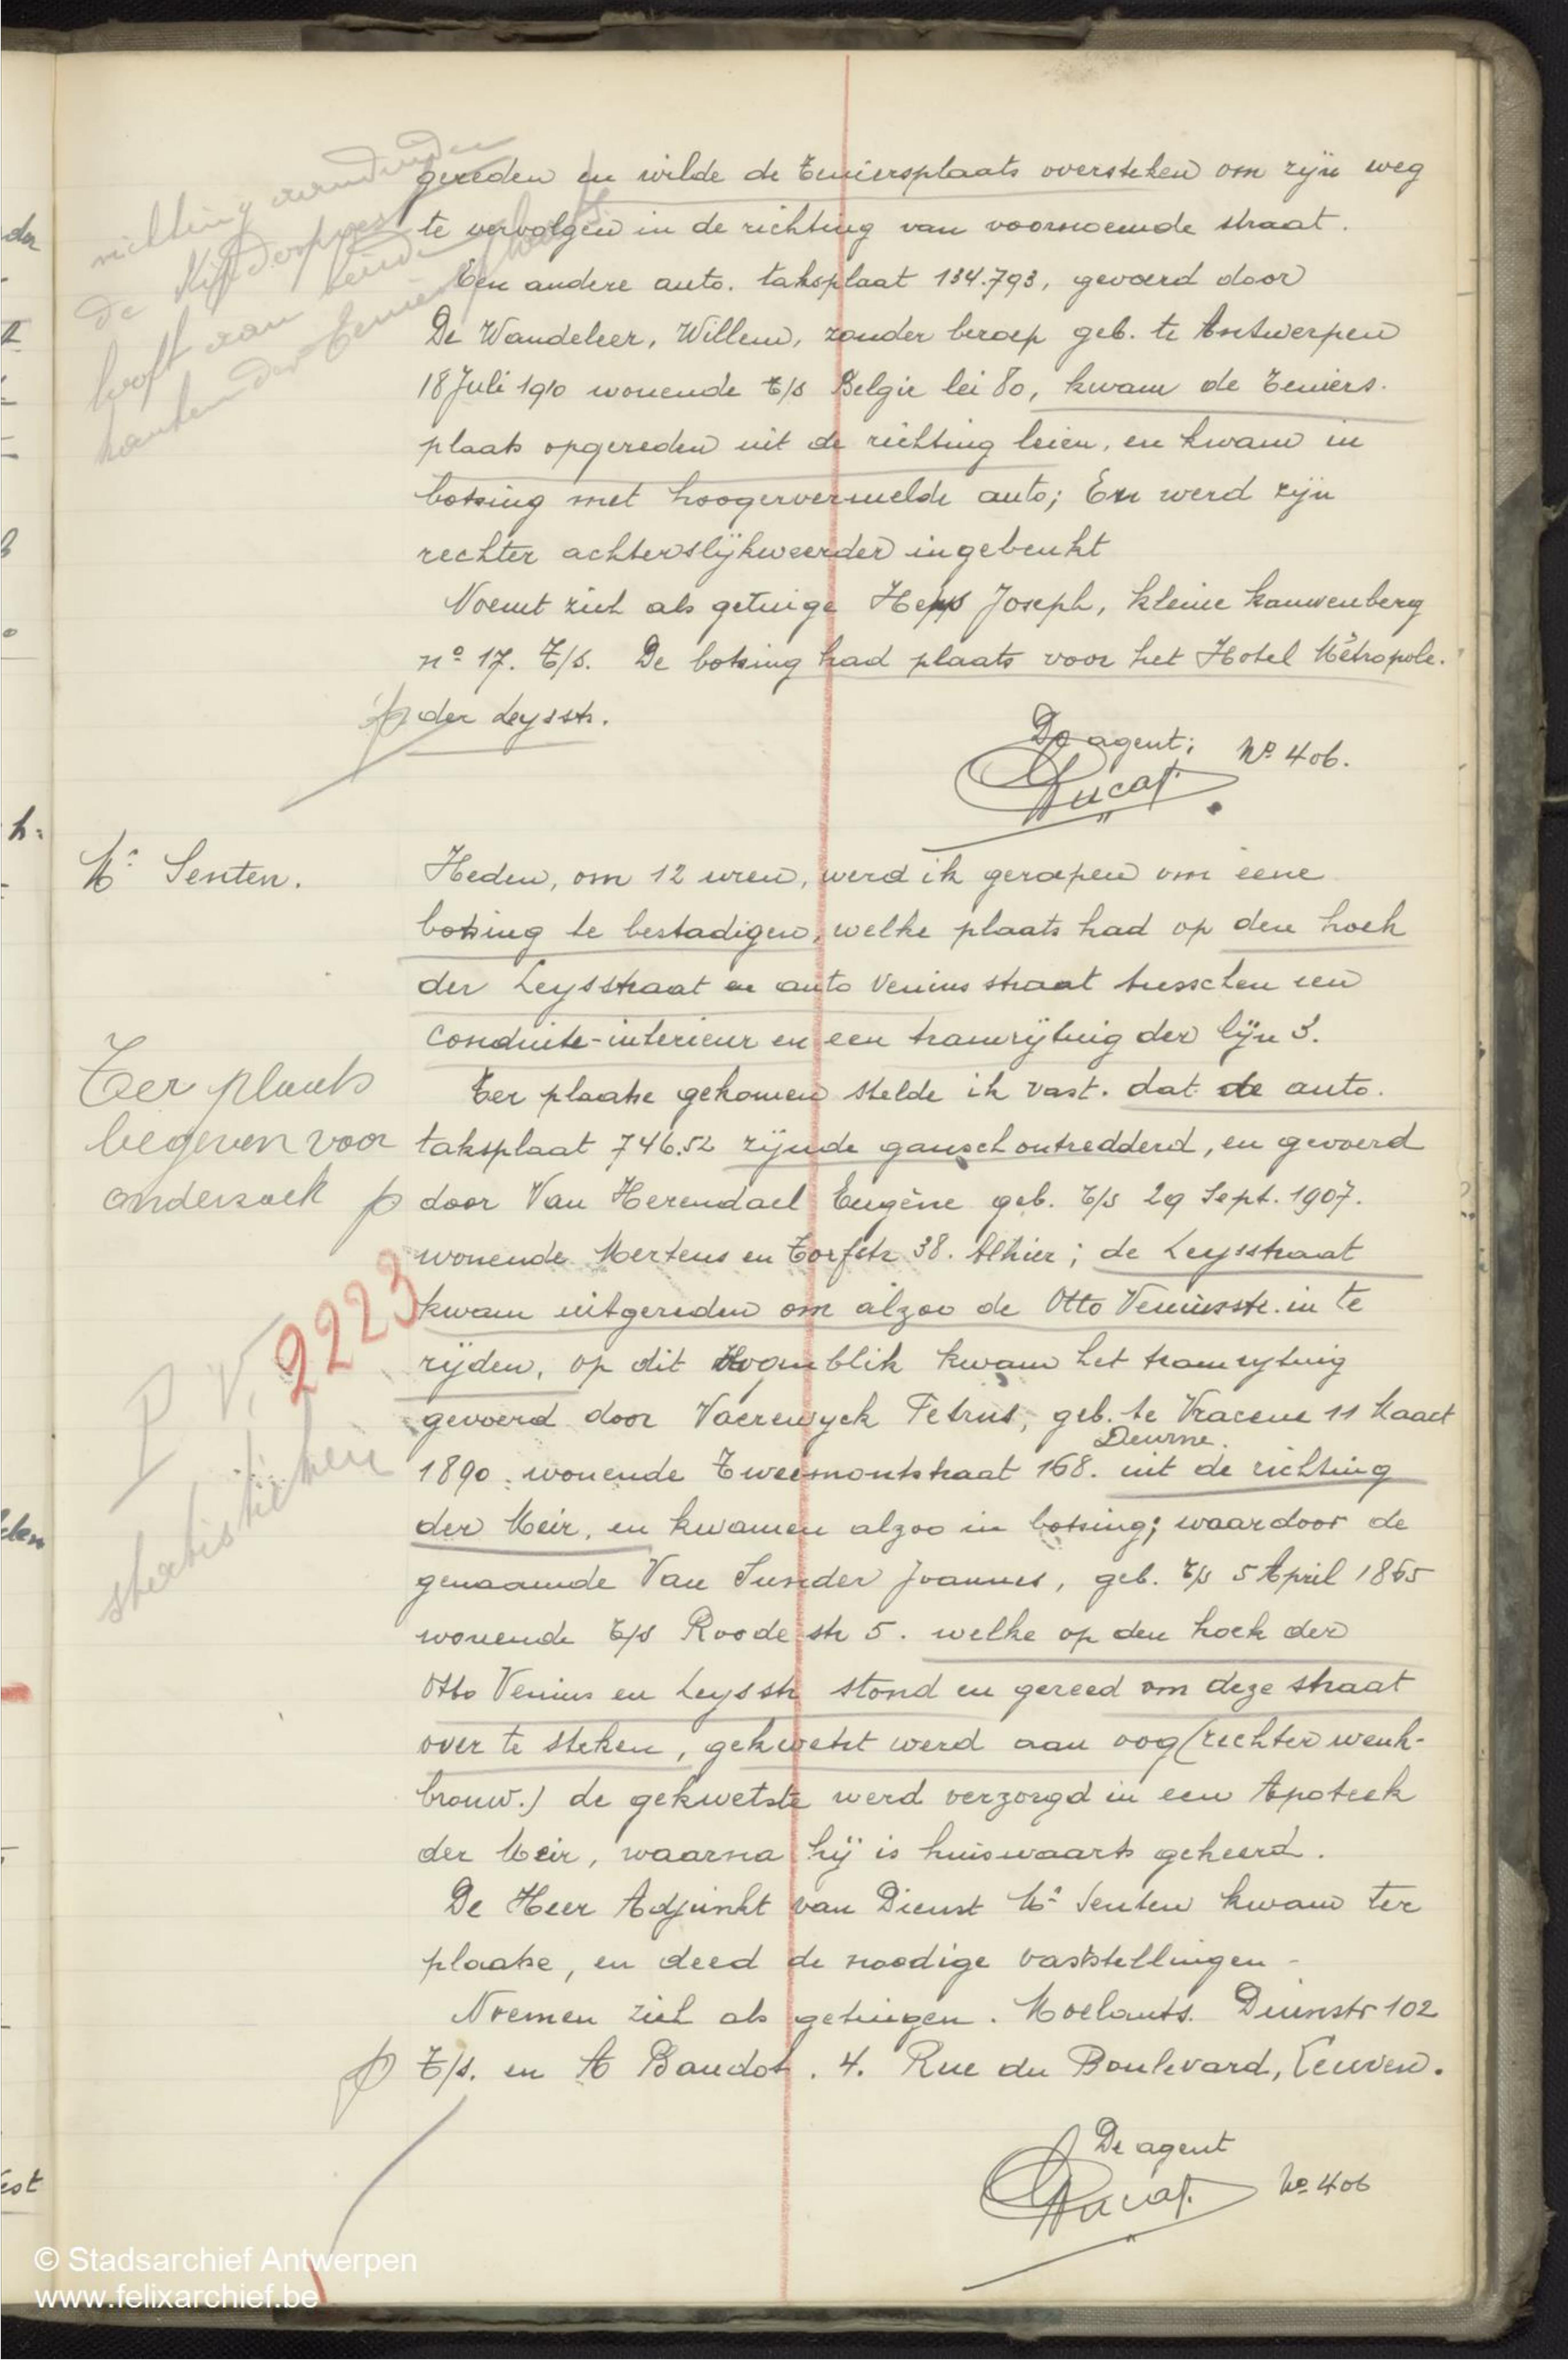 gereden en wilde de Teniersplaats oversteken om zijn weg
te vervolgen in de richting van voornoemde straat.
Een andere auto. taksplaat 134.793, gevoerd door
De Wandeleer, Willem, zonder beroep geb. te Antwerpen
18 Juli 1910 wonende T/s Belgie lei 80, kwam de Teniers.
plaats opgereden uit de richting leien, en kwam in
botsing met hoogervermelde auto; En werd zijn
rechter achterslijkweerder ingebeukt
Noemt zich als getuige Heps Joseph, kleine kauwenberg
nº 17. T/s. De botsing had plaats voor het Hotel Métropole.
der Leysstr.
De agent; Nº 406.
richting
de
hoeft van beide
kanten der Teniersplaats
Mr Senten.
Heden, om 12 uren, werd ik geroepen om eene
botsing te bestadigen, welke plaats had op den hoek
der Leysstraat en auto Venius straat tusschen een
conduite-interieur en een tramrijtuig der lijn 3.
Ter plaats
begeven voor
onderzoek
Ter plaatse gekomen stelde ik vast. dat de auto.
taksplaat 746.52 zijnde gansch ontredderd, en gevoerd
door Van Herendael Eugène geb. T/s 29 Sept. 1907.
wonende Mertens en Torfstr 38. Alhier; de Leysstraat
kwam uitgereden om alzoo de Otto Veniusstr. in te
rijden, op dit oogenblik kwam het tramrijtuig
gevoerd door Vaerewyck Petrus, geb. te Vracene 11 Maart
Deurne.
1890. wonende Tweemontstraat 168. uit de richting
der Meir, en kwamen alzoo in botsing; waardoor de
genaamde Van Sunder Joannes, geb. T/s 5 April 1865
wonende T/s Roode str 5. welke op den hoek der
Otto Venius en Leysstr stond en gereed om deze straat
over te steken, gekwetst werd aan oog (rechter wenk-
brouw.) de gekwetste werd verzorgd in een Apoteek
der Meir, waarna hij is huiswaarts gekeerd.
De Heer Adjunkt van Dienst Mr Senten kwam ter
plaatse, en deed de noodige vaststellingen -
Noemen zich als getuigen. Moelants. Duinstr 102
T/s. en A Baudot. 4. Rue du Boulevard, Leuven.
P V, 2223
statistieken
De agent
No 406
der
h.
© Stadsarchief Antwerpen
www.felixarchief.be